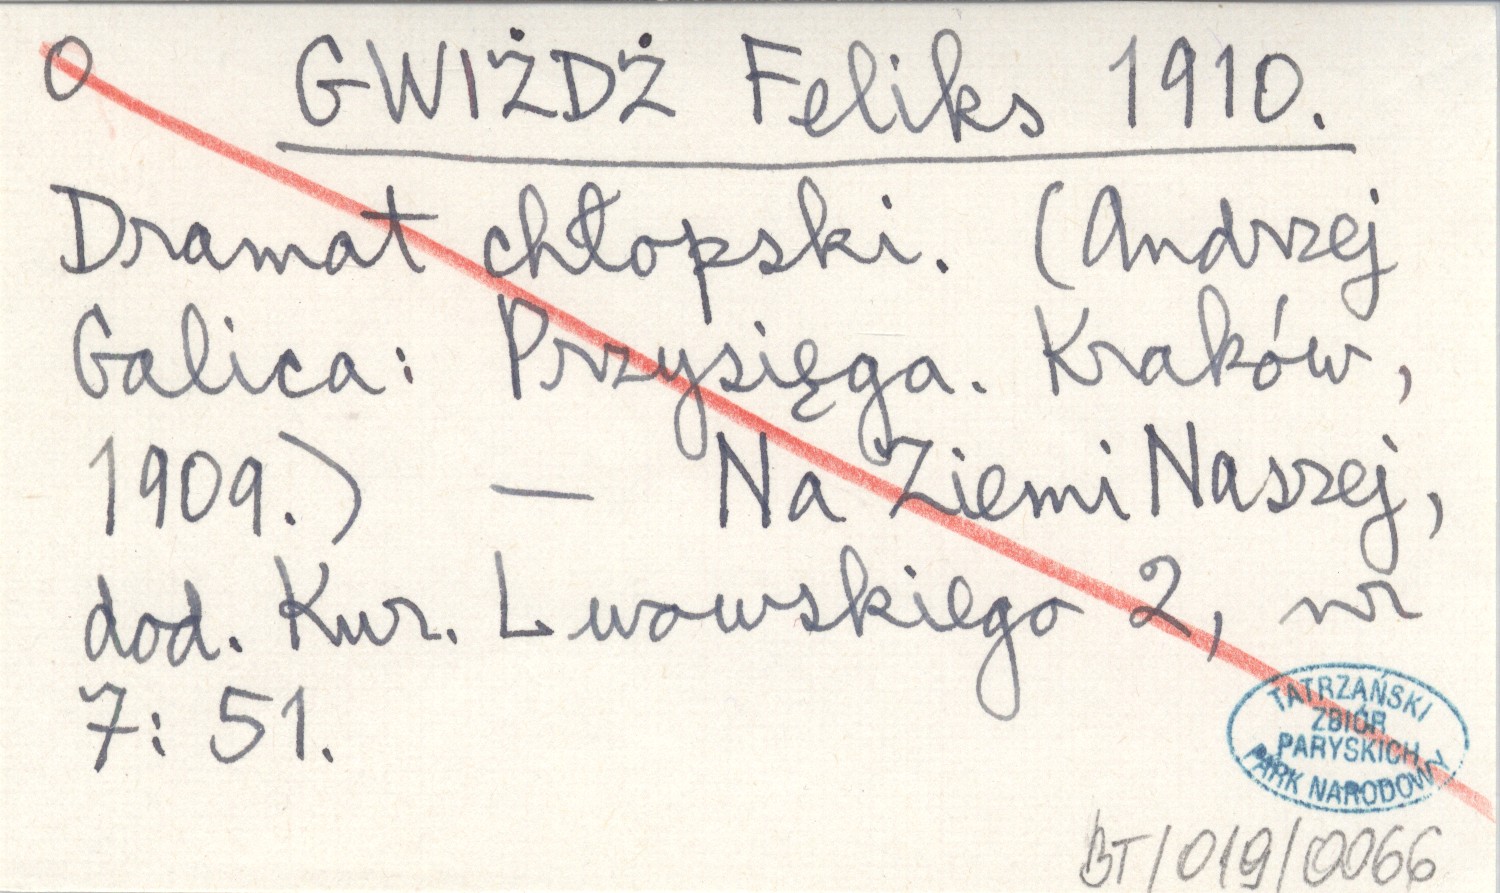 O GWIŻDŻ Feliks 1910.
Dramat chłopski. (Andrzej
Galica: Przysięga. Kraków,
1909.) — Na Ziemi Naszej,
dod. Kur. Lwowskiego 2, nr
7: 51.
TATRZAŃSKI
ZBIÓR
PARYSKICH
PARK NARODOWY
BT/019/0066